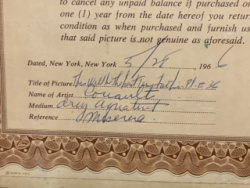 to cancel any unpaid balance if purchased on
one (1) year from the date hereof you return
condition as when purchased and furnish us
that said picture is not genuine as aforesaid.
Dated, New York, New York 3/28 1966
Title of Picture
Name of Artist Rouault
Medium Aquatint
Reference